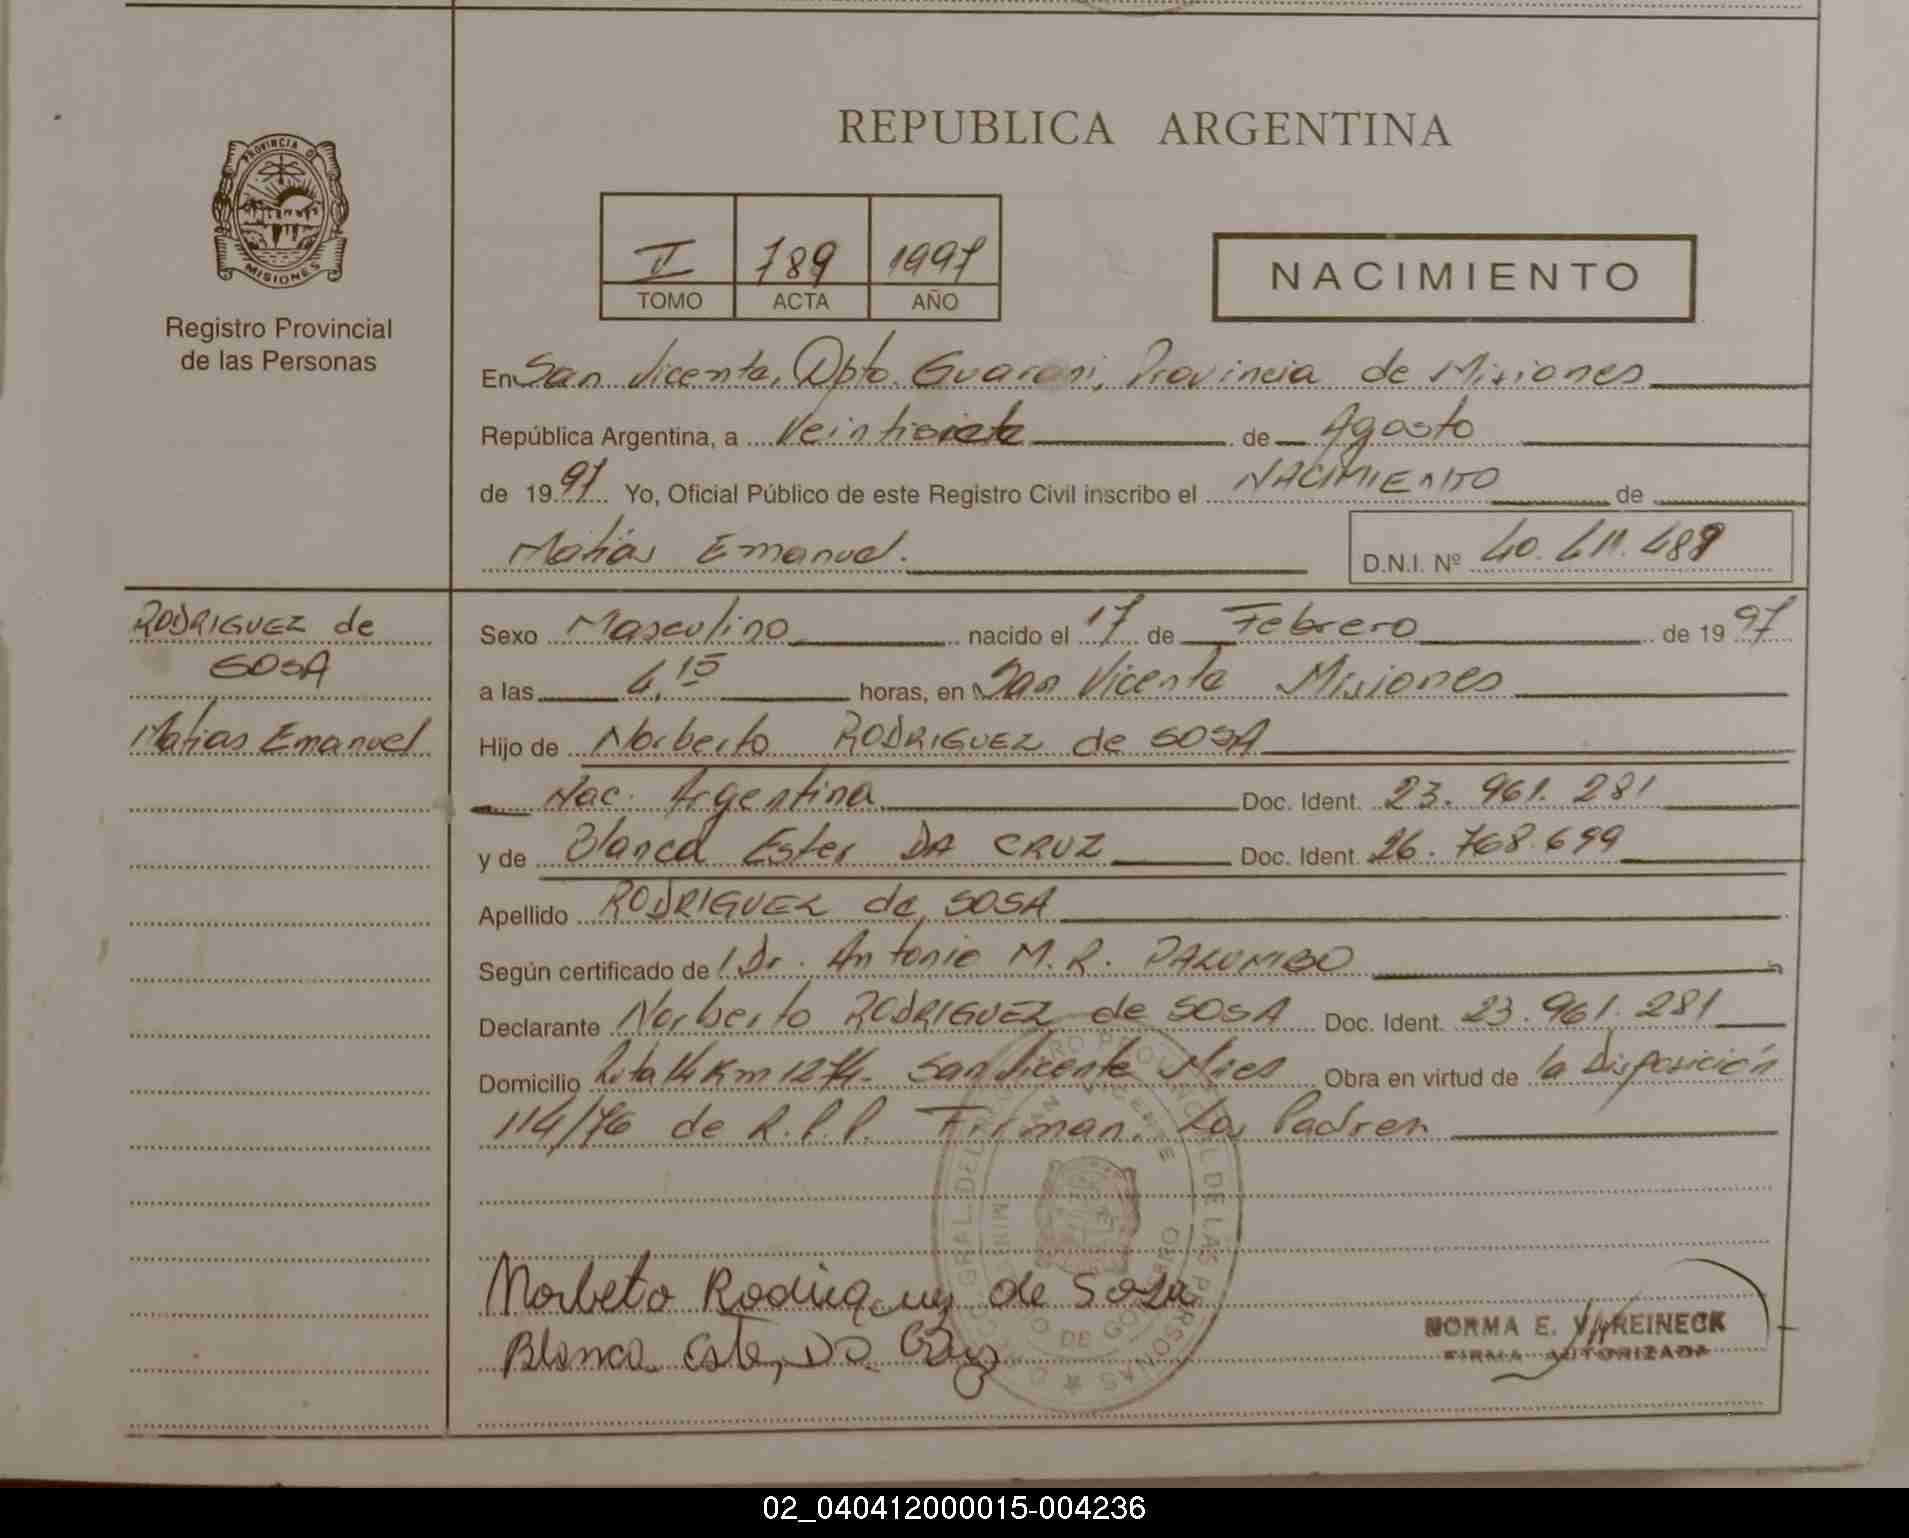 REPUBLICA ARGENTINA
PROVINCIA DE
MISIONES
Registro Provincial
de las Personas
II 789 1997
TOMO ACTA AÑO
NACIMIENTO
En San Vicente, Dpto. Guarani, Provincia de Misiones
República Argentina, a Veintisiete de Agosto
de 1997 Yo, Oficial Público de este Registro Civil inscribo el NACIMIENTO de
Matías Emanuel. D.N.I. Nº 40.411.489
RODRIGUEZ de
SOSA
Matias Emanuel
Sexo Masculino nacido el 17 de Febrero de 1997
a las 4,15 horas, en San Vicente Misiones
Hijo de Norberto RODRIGUEZ de SOSA
Nac. Argentina Doc. Ident. 23.961.281
y de Blanca Ester DA CRUZ Doc. Ident. 26.768.699
Apellido RODRIGUEZ de SOSA
Según certificado de Dr. Antonio M.R. PALUMBO
Declarante Norberto RODRIGUEZ de SOSA Doc. Ident. 23.961.281
Domicilio Ruta 14 Km 1274. San Vicente Mnes Obra en virtud de la Disposición
114/76 de R.P.P. Firman. Los Padres
Norbeto Rodriguez de Sosa
Blanca Este, Da Cruz
NORMA E. REINECK
FIRMA AUTORIZADA
02_040412000015-004236